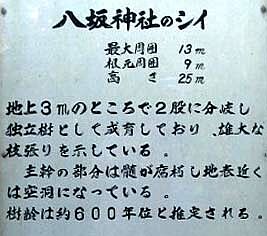 八坂神社のシイ
最大周囲 13m
根元周囲 9m
高さ 25m
地上3mのところで2股に分岐し
独立樹として成育しており、雄大な
枝張りを示している。
主幹の部分は髄が腐朽し地表近く
は空洞になっている。
樹齢は約600年位と推定される。